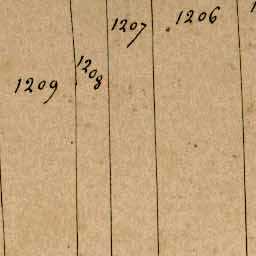 1209
1208
1207
1206